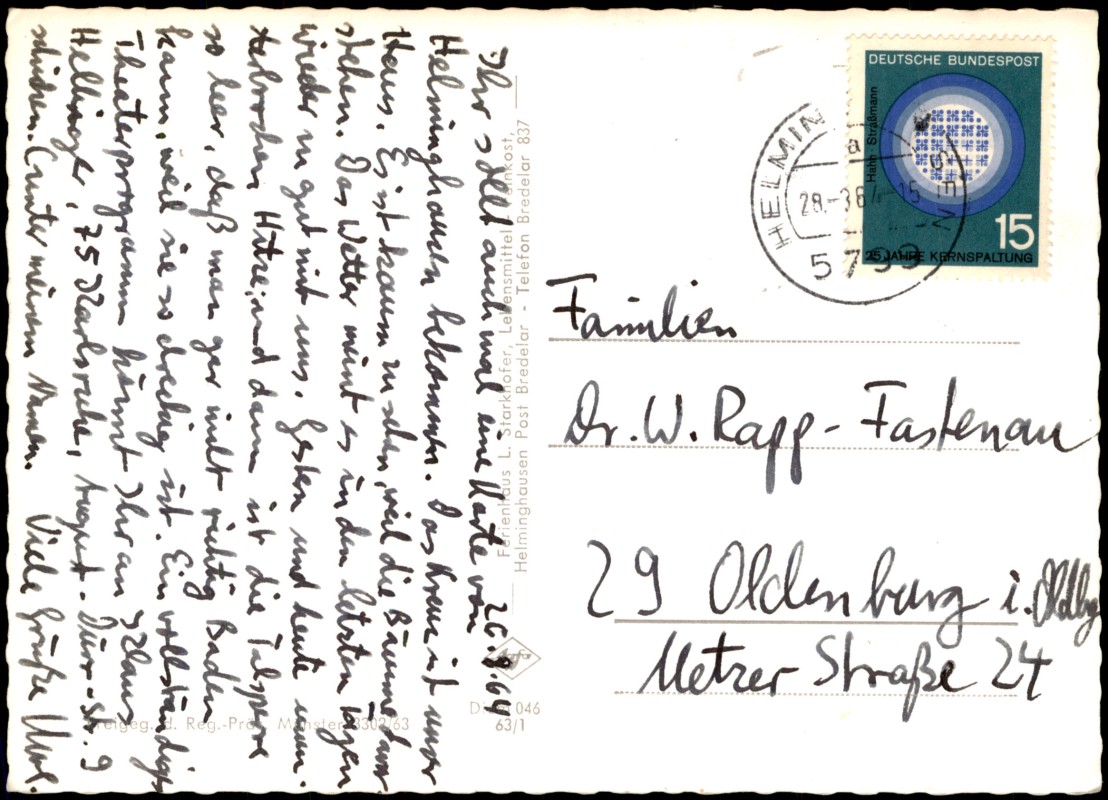 26.8.64
Ihr sollt auch mal eine Karte von
Helminghausen bekommen. Das Kreuz ist unser
Haus. Es ist kaum zu sehen, weil die Bäume davor
stehen. Das Wetter meint es in den letzten Tagen
wieder so gut mit uns. Gestern und heute
Hitze; und dann ist die Talsperre
so leer, daß man gar nicht richtig Baden
kann, weil sie so dreckig ist. Ein vollständiges
Theaterprogramm könnt Ihr an Klaus
75 Karlsruhe, August-Dürr-Str. 9
schicken. (unter meinem Namen. Viele Grüße
Ferienhaus L. Starkhofer, Lebensmittel - Feinkost,
Helminghausen Post Bredelar - Telefon Bredelar 837
Freigeg. d. Reg.-Präs. Münster 3302/63
046
63/1
DEUTSCHE BUNDESPOST
Hahn · Straßmann
15
25 JAHRE KERNSPALTUNG
a
5799
Familien
Dr. W. Rapp - Fastenau
29 Oldenburg i. Oldbg
Metzer Straße 24